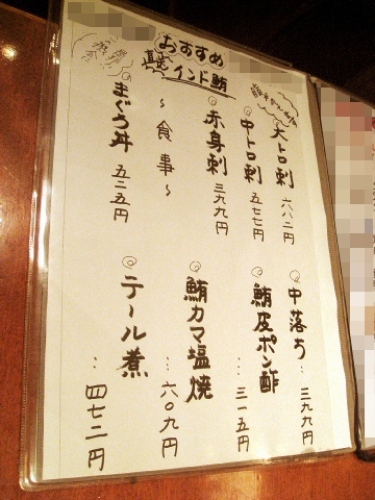 おすすめ
直送
インド鮪
大トロ刺 六八二円
中トロ刺 五七七円
赤身刺 三九九円
〜食事〜
まぐろ丼 五二五円
中落ち…三九九円
鮪皮ポン酢…三一五円
鮪カマ塩焼…六〇九円
テール煮…四七二円